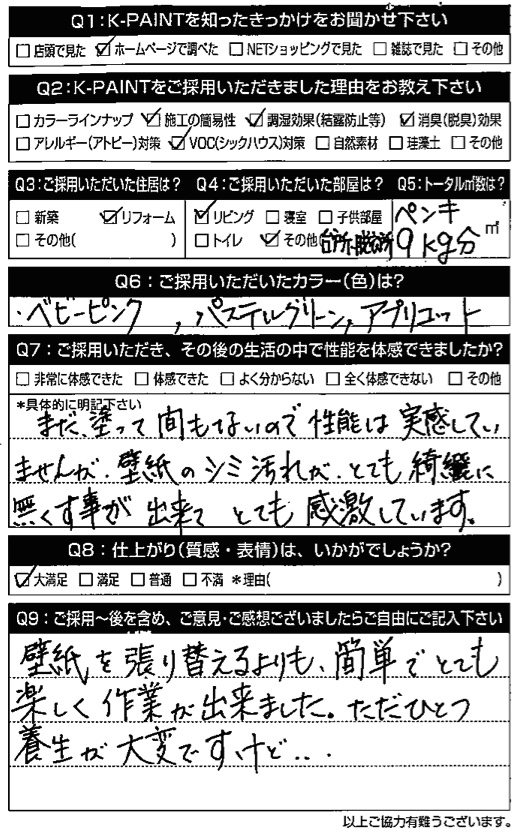 Q1:K-PAINTを知ったきっかけをお聞かせ下さい
□店頭で見た ☑ホームページで調べた □NETショッピングで見た □雑誌で見た □その他
Q2:K-PAINTをご採用いただきました理由をお教え下さい
□カラーラインナップ ☑施工の簡易性 ☑調湿効果(結露防止等) ☑消臭(脱臭)効果
□アレルギー(アトピー)対策 ☑VOC(シックハウス)対策 □自然素材 □珪藻土 □その他
Q3:ご採用いただいた住居は?
□新築 ☑リフォーム
□その他( )
Q4:ご採用いただいた部屋は?
☑リビング □寝室 □子供部屋
□トイレ ☑その他 台所・脱衣所
Q5:トータル㎡数は?
ペンキ
9kg分 ㎡
Q6:ご採用いただいたカラー(色)は?
・ベビーピンク , パステルグリーン, アプリコット
Q7:ご採用いただき、その後の生活の中で性能を体感できましたか?
□非常に体感できた □体感できた □よく分からない □全く体感できない □その他
*具体的に明記下さい
まだ、塗って間もないので性能は実感してい
ませんが、壁紙のシミ汚れが、とても綺麗に
無くす事が出来て とても感激しています。
Q8:仕上がり(質感・表情)は、いかがでしょうか?
☑大満足 □満足 □普通 □不満 *理由( )
Q9:ご採用〜後を含め、ご意見・ご感想ございましたらご自由にご記入下さい
壁紙を張り替えるよりも、簡単でとても
楽しく作業が出来ました。ただひとつ
養生が大変ですけど...
以上ご協力有難うございます。